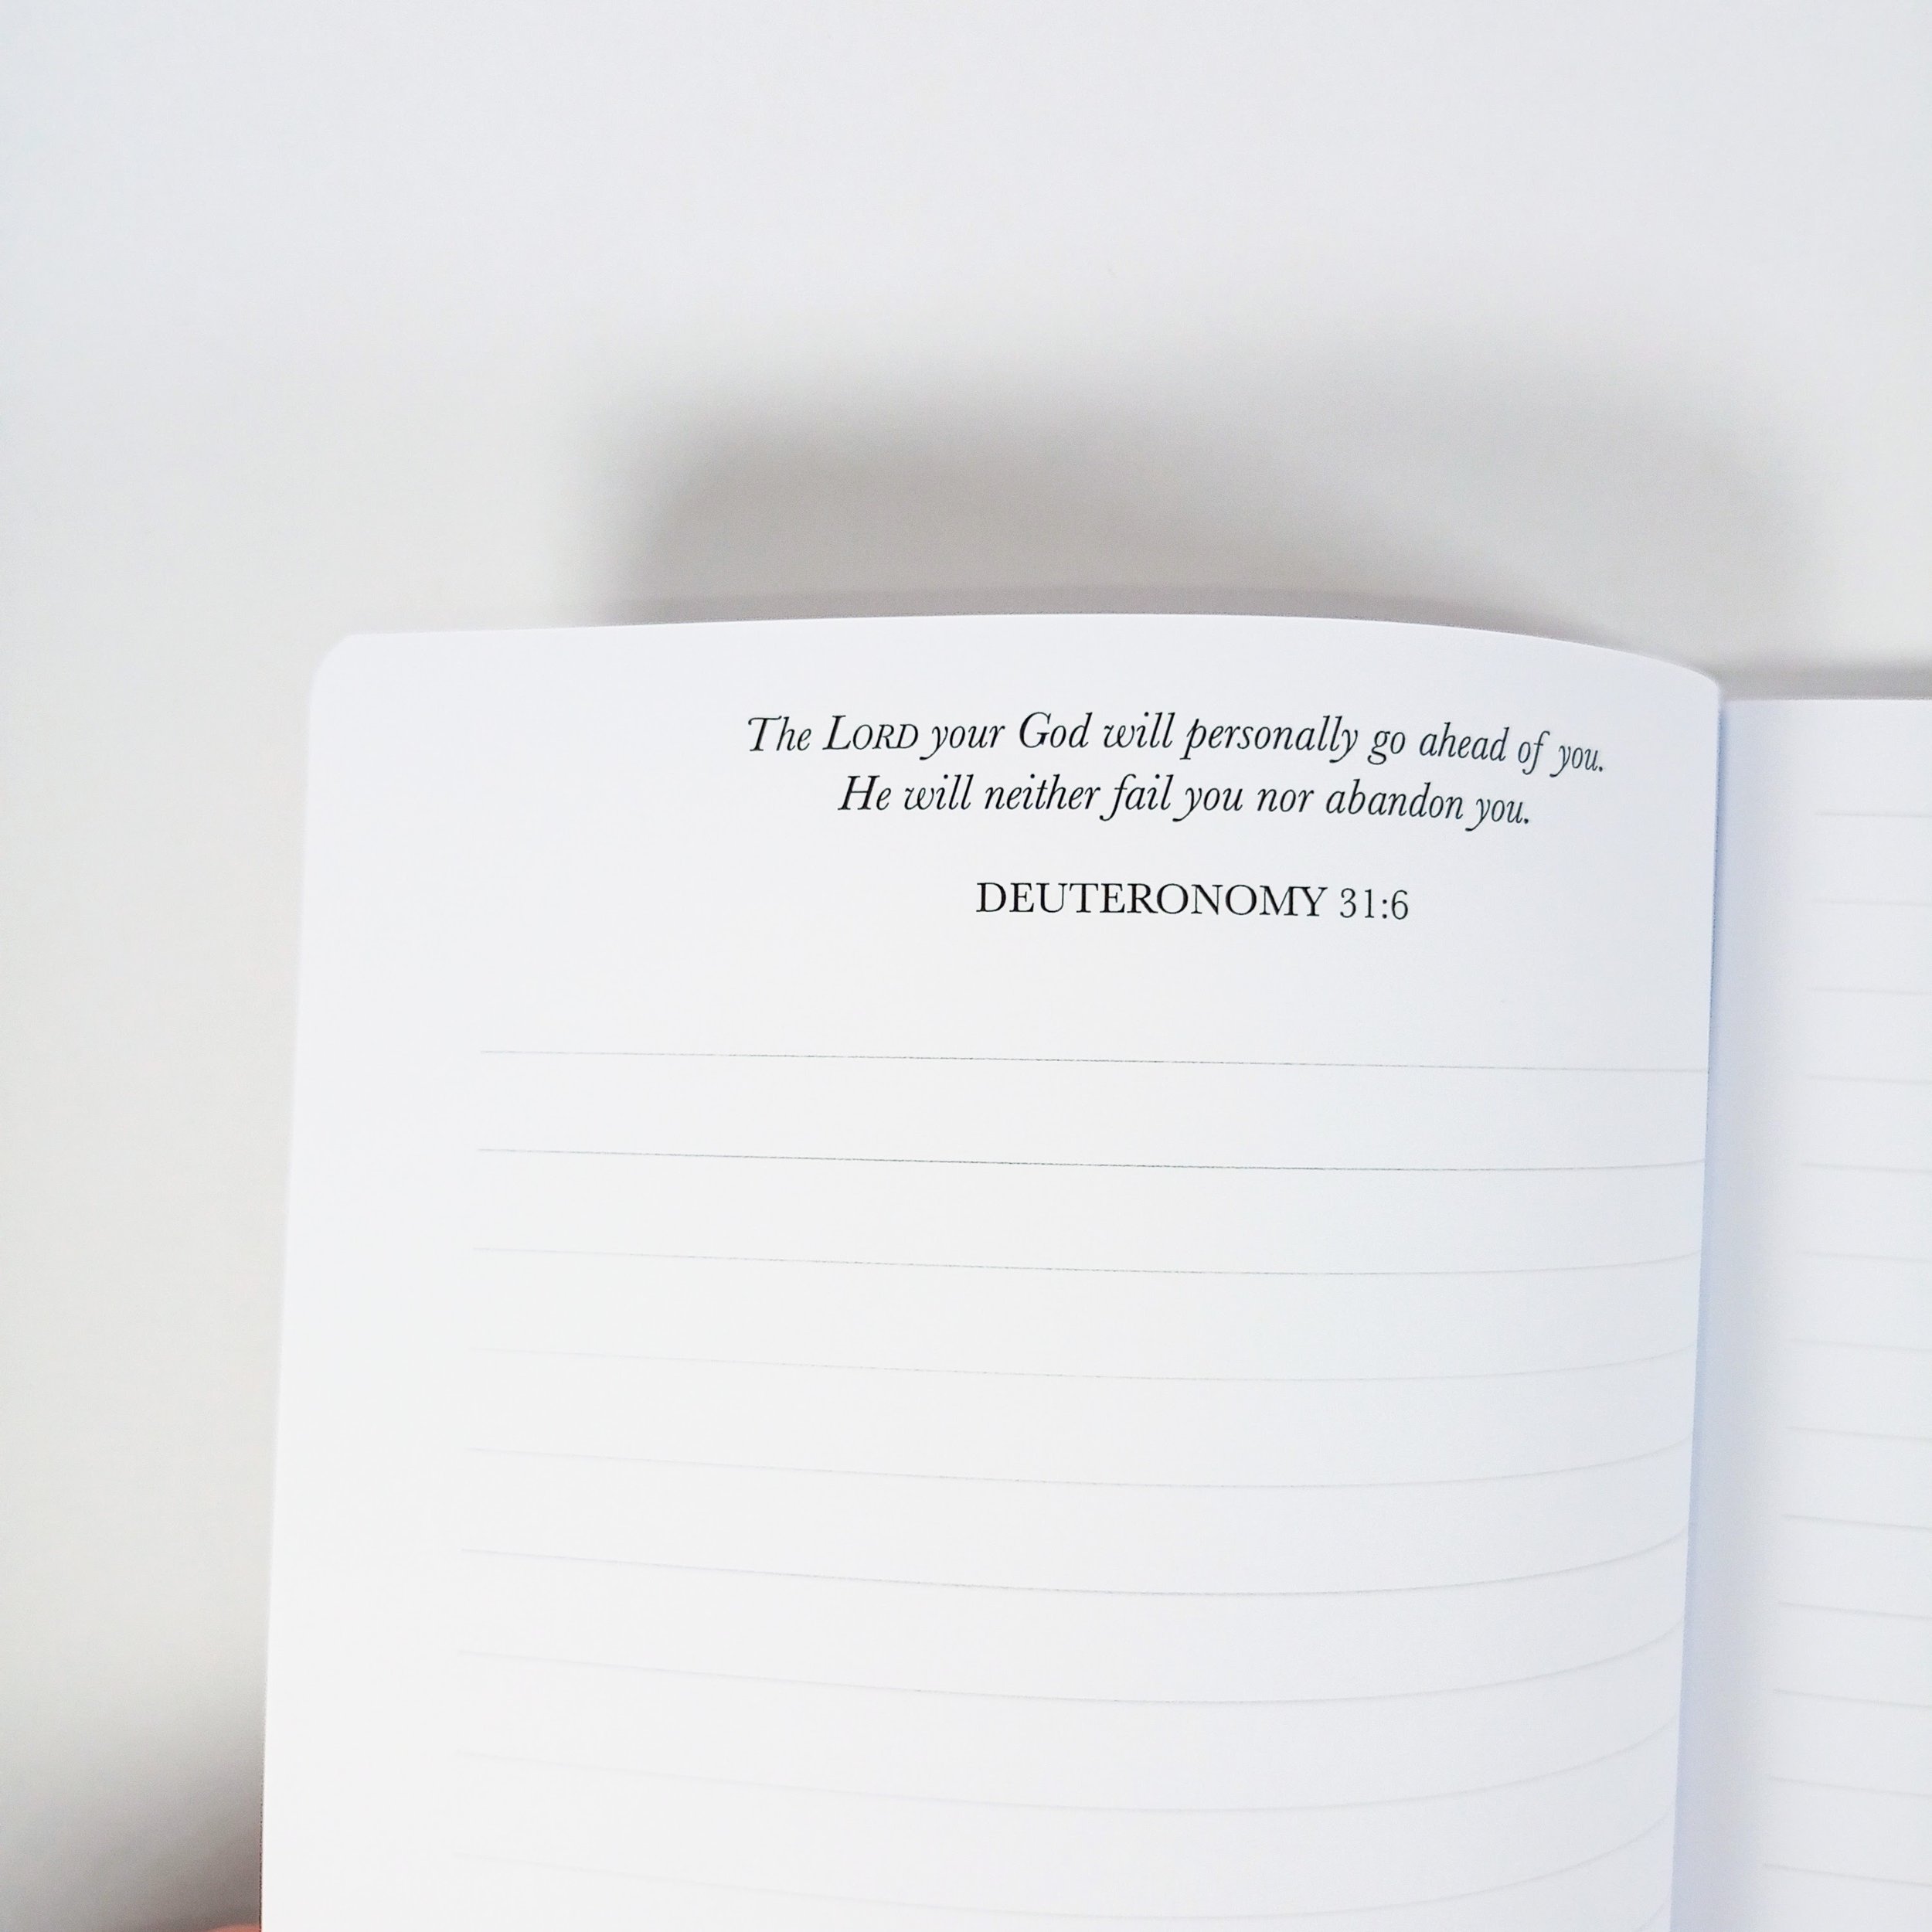 The LORD your God will personally go ahead of you.
He will neither fail you nor abandon you.
DEUTERONOMY 31:6